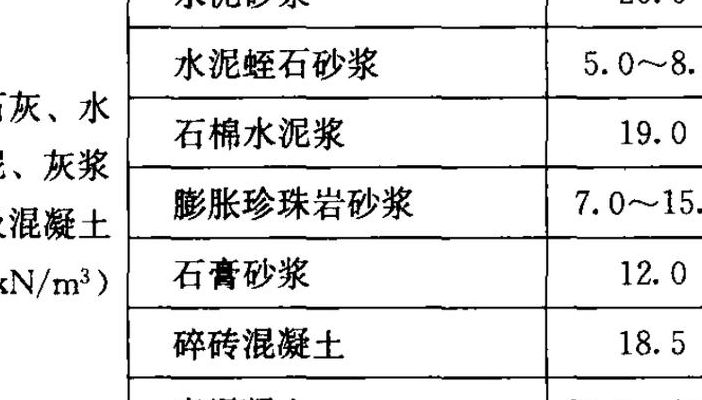 水泥砂浆 20.0
水泥蛭石砂浆 5.0～8.
石棉水泥浆 19.0
膨胀珍珠岩砂浆 7.0～15.
石膏砂浆 12.0
碎砖混凝土 18.5
灰、水
、灰浆
混凝土
kN/m³）